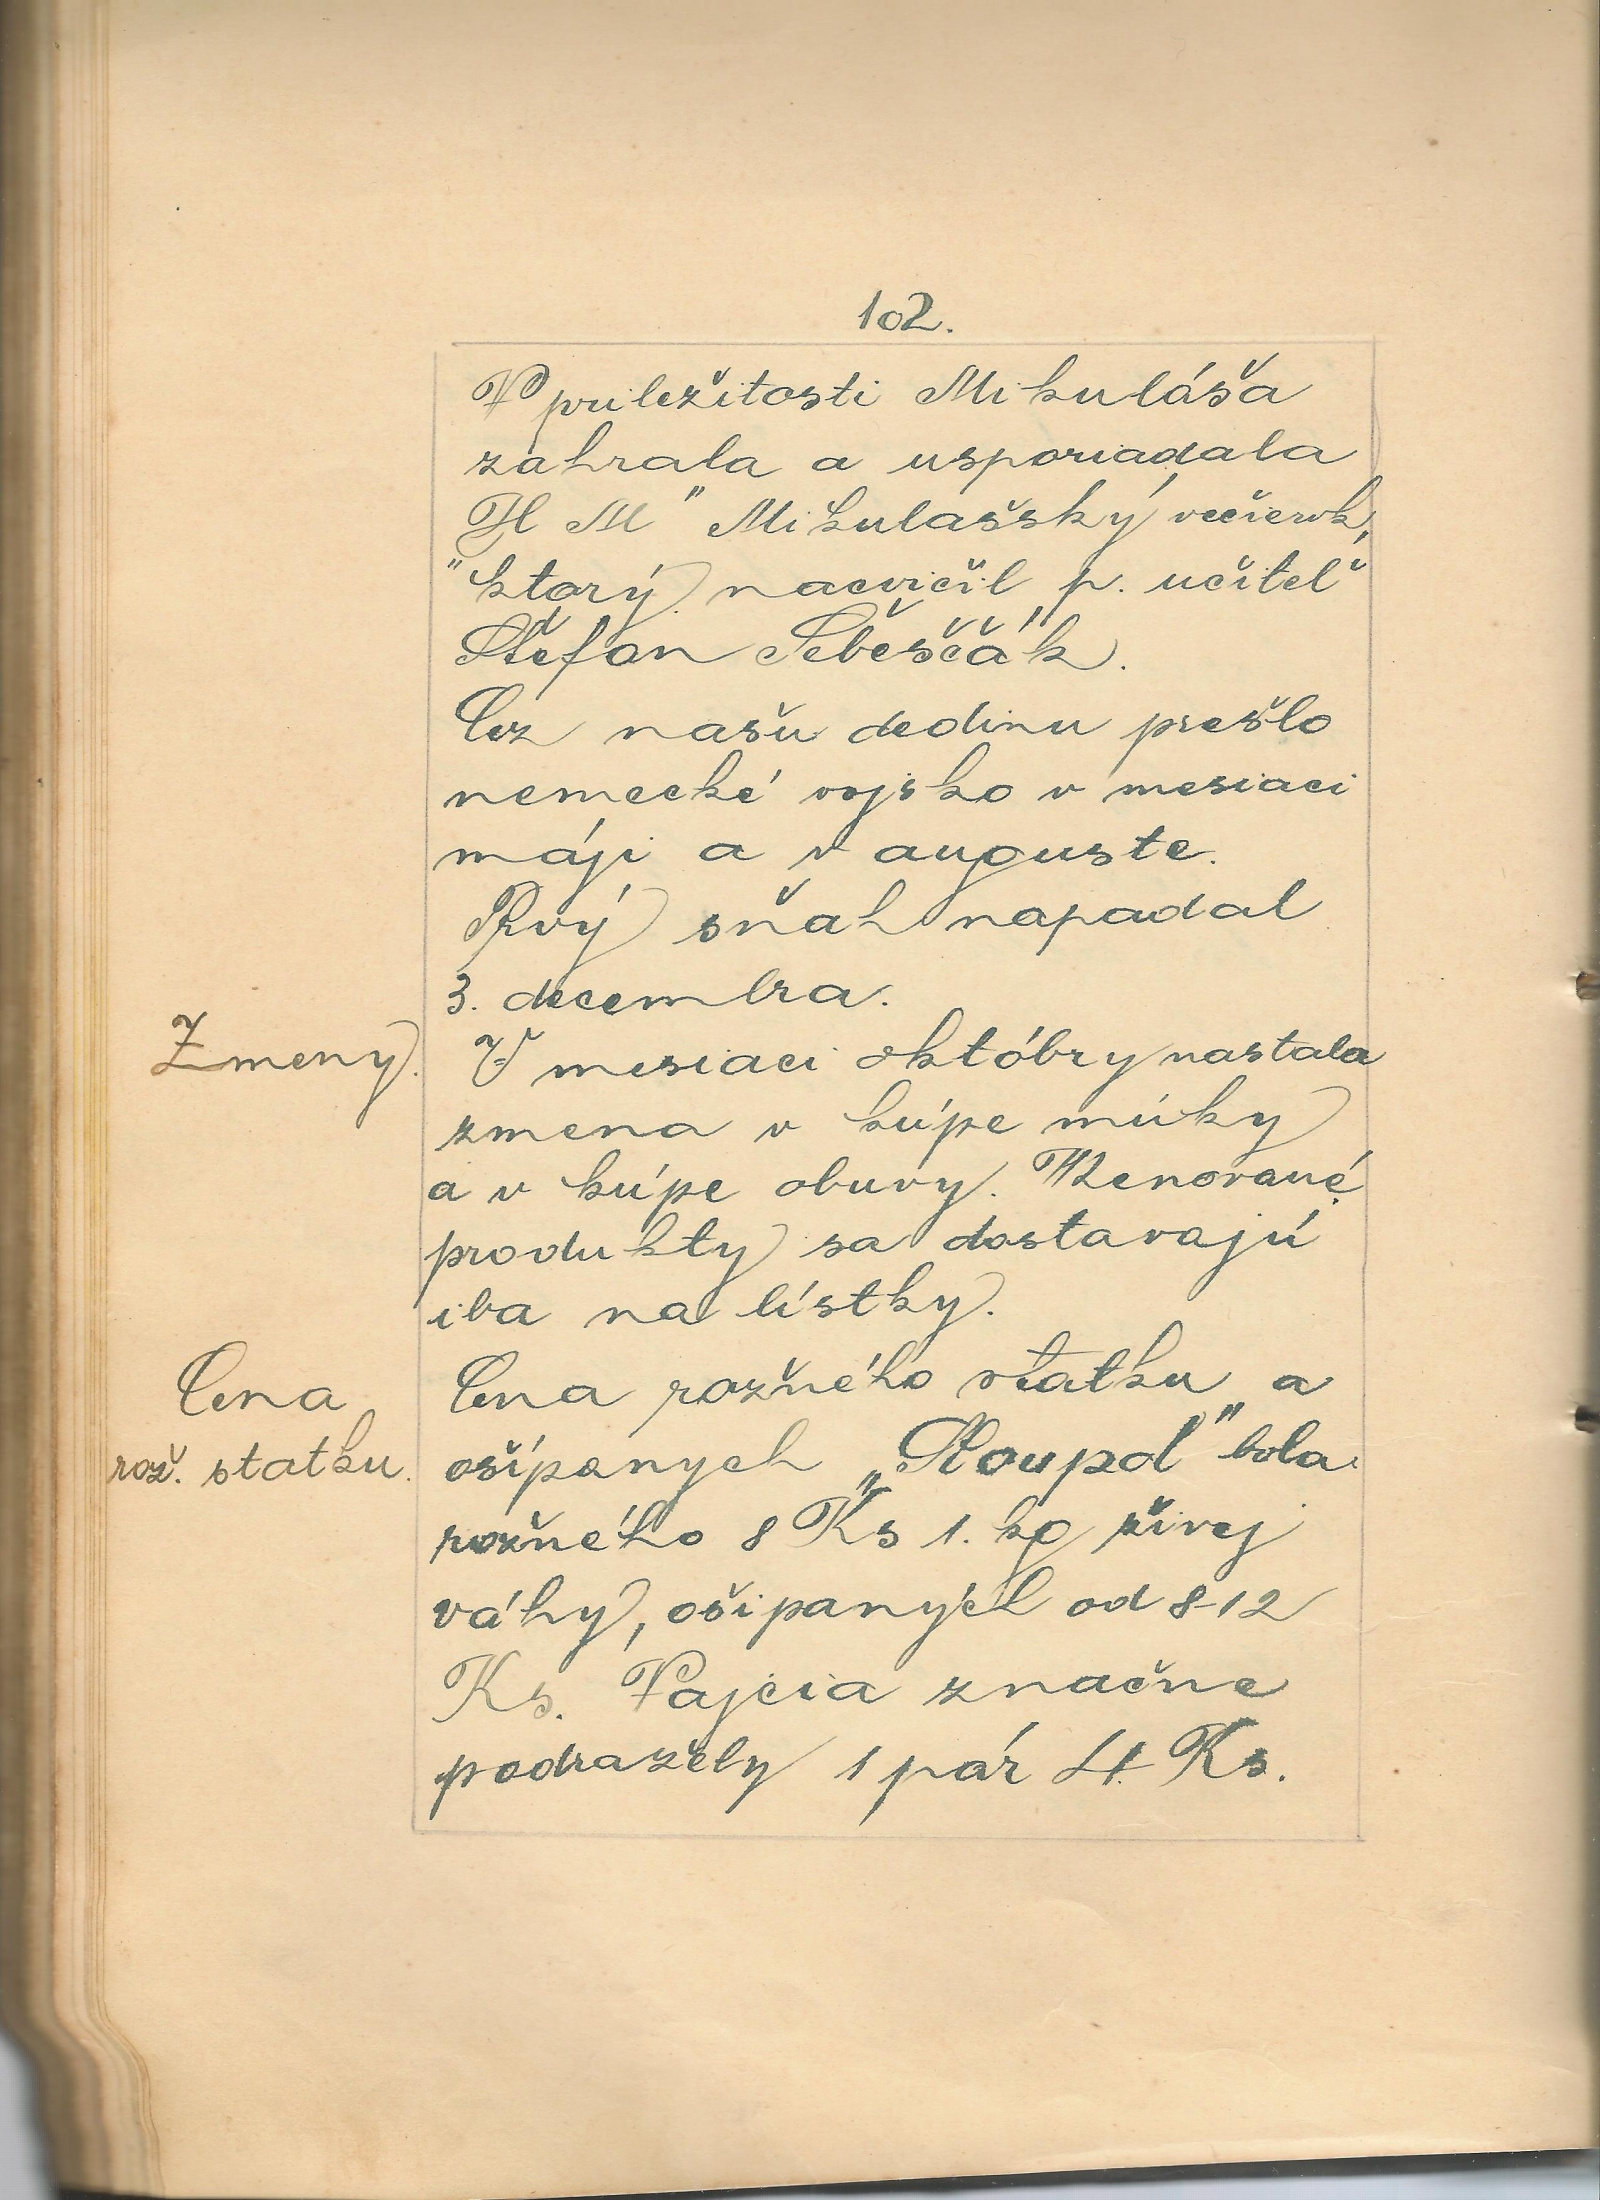 102.
V priležitosti Mikuláša
zahrala a usporiadala
H M " Mikulašský večierok,
" ktorý nacvičil p. učiteľ
Štefan Šebeščák.
Cez našu dedinu prešlo
nemecké vojsko v mesiaci
máji a v auguste.
Prvý sňah napadal
3. decembra.
Zmeny.
V mesiaci októbry nastala
zmena v kúpe múky
a v kúpe obuvy. Menované
produkty sa dostavajú
iba na lístky.
Cena
rož. statku.
Cena rožného statku a
ošípanych „ " bola
rožného 8 Ks 1. kg živej
váhy, ošipaných od 8-12
Ks. Vajcia značne
podražely 1 pár 4 Ks.